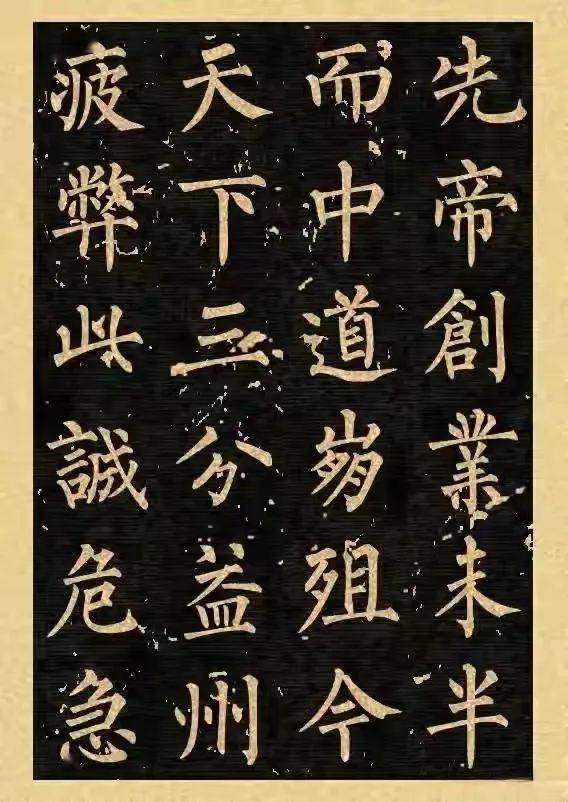 先帝創業未半
而中道崩殂今
天下三分益州
疲弊此誠危急